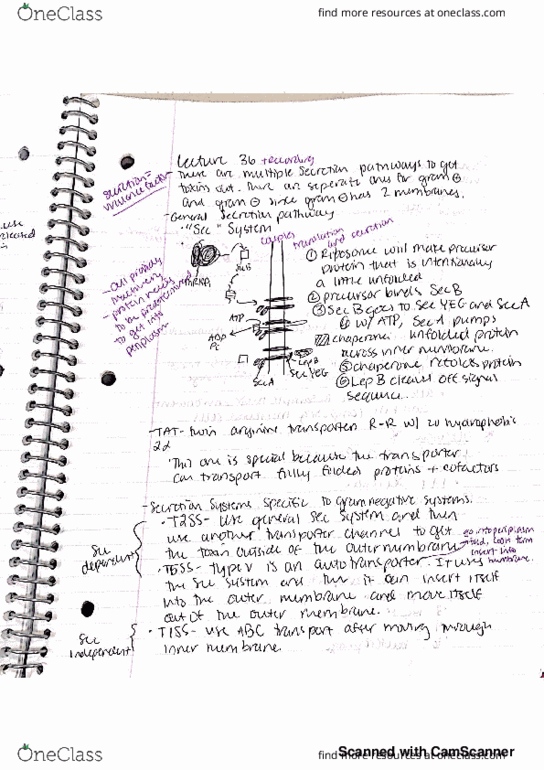 OneClass
find more resources at oneclass.com
Lecture 36 + recording
secretion =
virulence factor
- There are multiple secretion pathways to get
toxins out. There are seperate ones for gram ⊕
and gram ⊖ since gram ⊖ has 2 membranes.
- General secretion pathway
· "Sec" System
couples translation
and secretion
- Cell provides
machinery
- protein needs
to be
to get into
periplasm
mRNA
SecB
ATP
ADP
Pi
SecA
SecYEG
LepB
① Ribosome will make precursor
protein that is intentionally
a little unfolded
② precursor binds SecB
③ SecB goes to SecYEG and SecA
④ w/ ATP, SecA pumps
unfolded protein
across inner membrane.
chaperone
⑤ chaperone refolds protein
⑥ LepB cleaves off signal
sequence.
- TAT - twin arginine transporter R-R w/ 20 hydrophobic
aa
· This one is special because the transporter
can transport fully folded proteins + cofactors
- Secretion Systems specific to gram negative systems.
Sec
dependent
· T2SS - Use general Sec system and then
use another transporter channel to get
the toxin outside of the outer membrane
go into periplasm
fold,
insert into
membrane.
· T5SS - type V is an autotransporter. It uses
the Sec system and then it can insert itself
into the outer membrane and move itself
out of the outer membrane.
Sec
independent
· T1SS - use ABC transport after moving through
inner membrane.
Scanned with CamScanner
OneClass
find more resources at oneclass.com